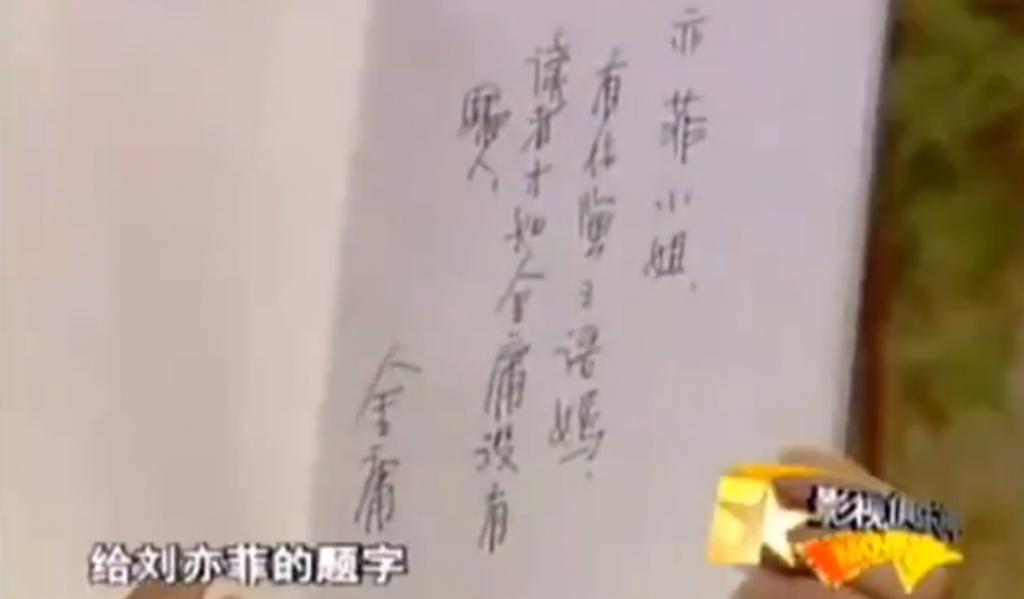 亦菲小姐、
有你演王语嫣、
读者才知金庸没有
骗人、
金庸
给刘亦菲的题字
影视俱乐部